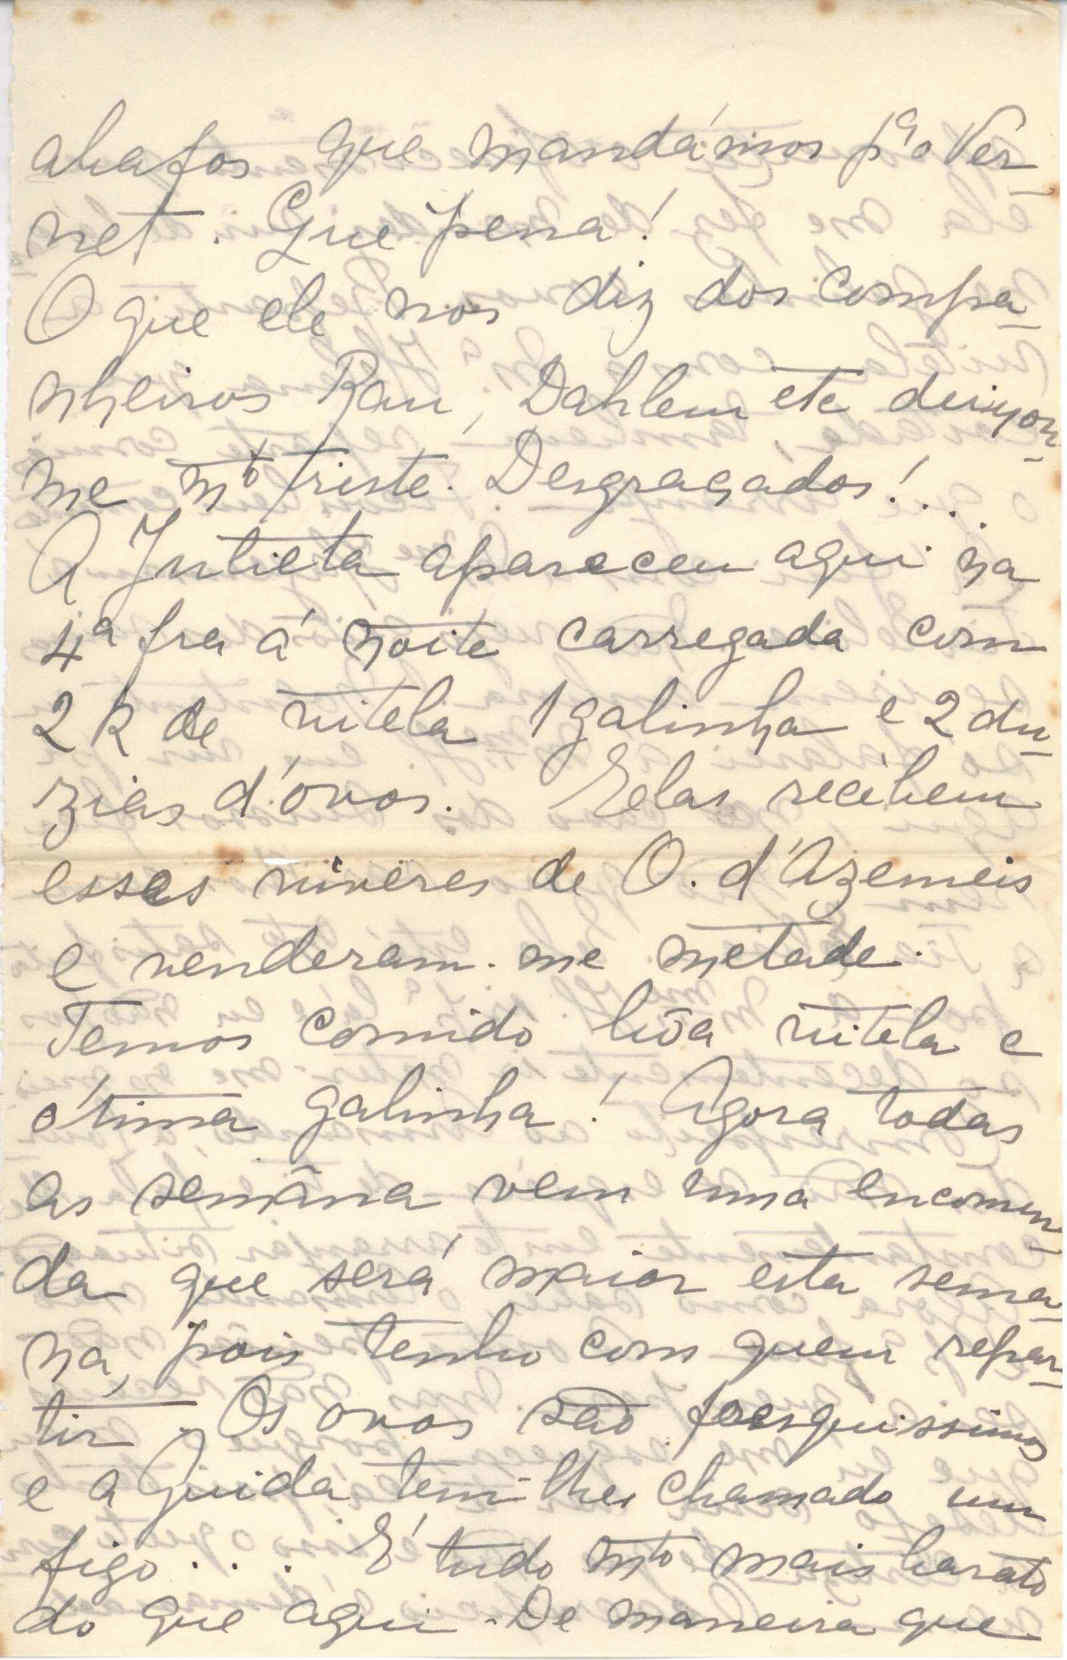 abafos que mandámos pª o Ver-
net. Que pena!
O que ele nos diz dos compa-
nheiros Rau, Dahlem etc deixou-
me mto triste. Desgraçados!...
A Julieta apareceu aqui na
4ª fra á noite carregada com
2 k de vitela 1 galinha e 2 du-
zias d'ovos. Elas recebem
esses viveres de O. d'Azemeis
e venderam-me metade.
Temos comido bôa vitela e
ótima galinha! Agora todas
as semana vem uma encomen-
da que será maior esta sema-
na, pois tenho com quem repar-
tir. Os ovos são fresquissimos
e a Guida tem-lhes chamado um
figo.... É tudo mto mais barato
do que aqui. De maneira que